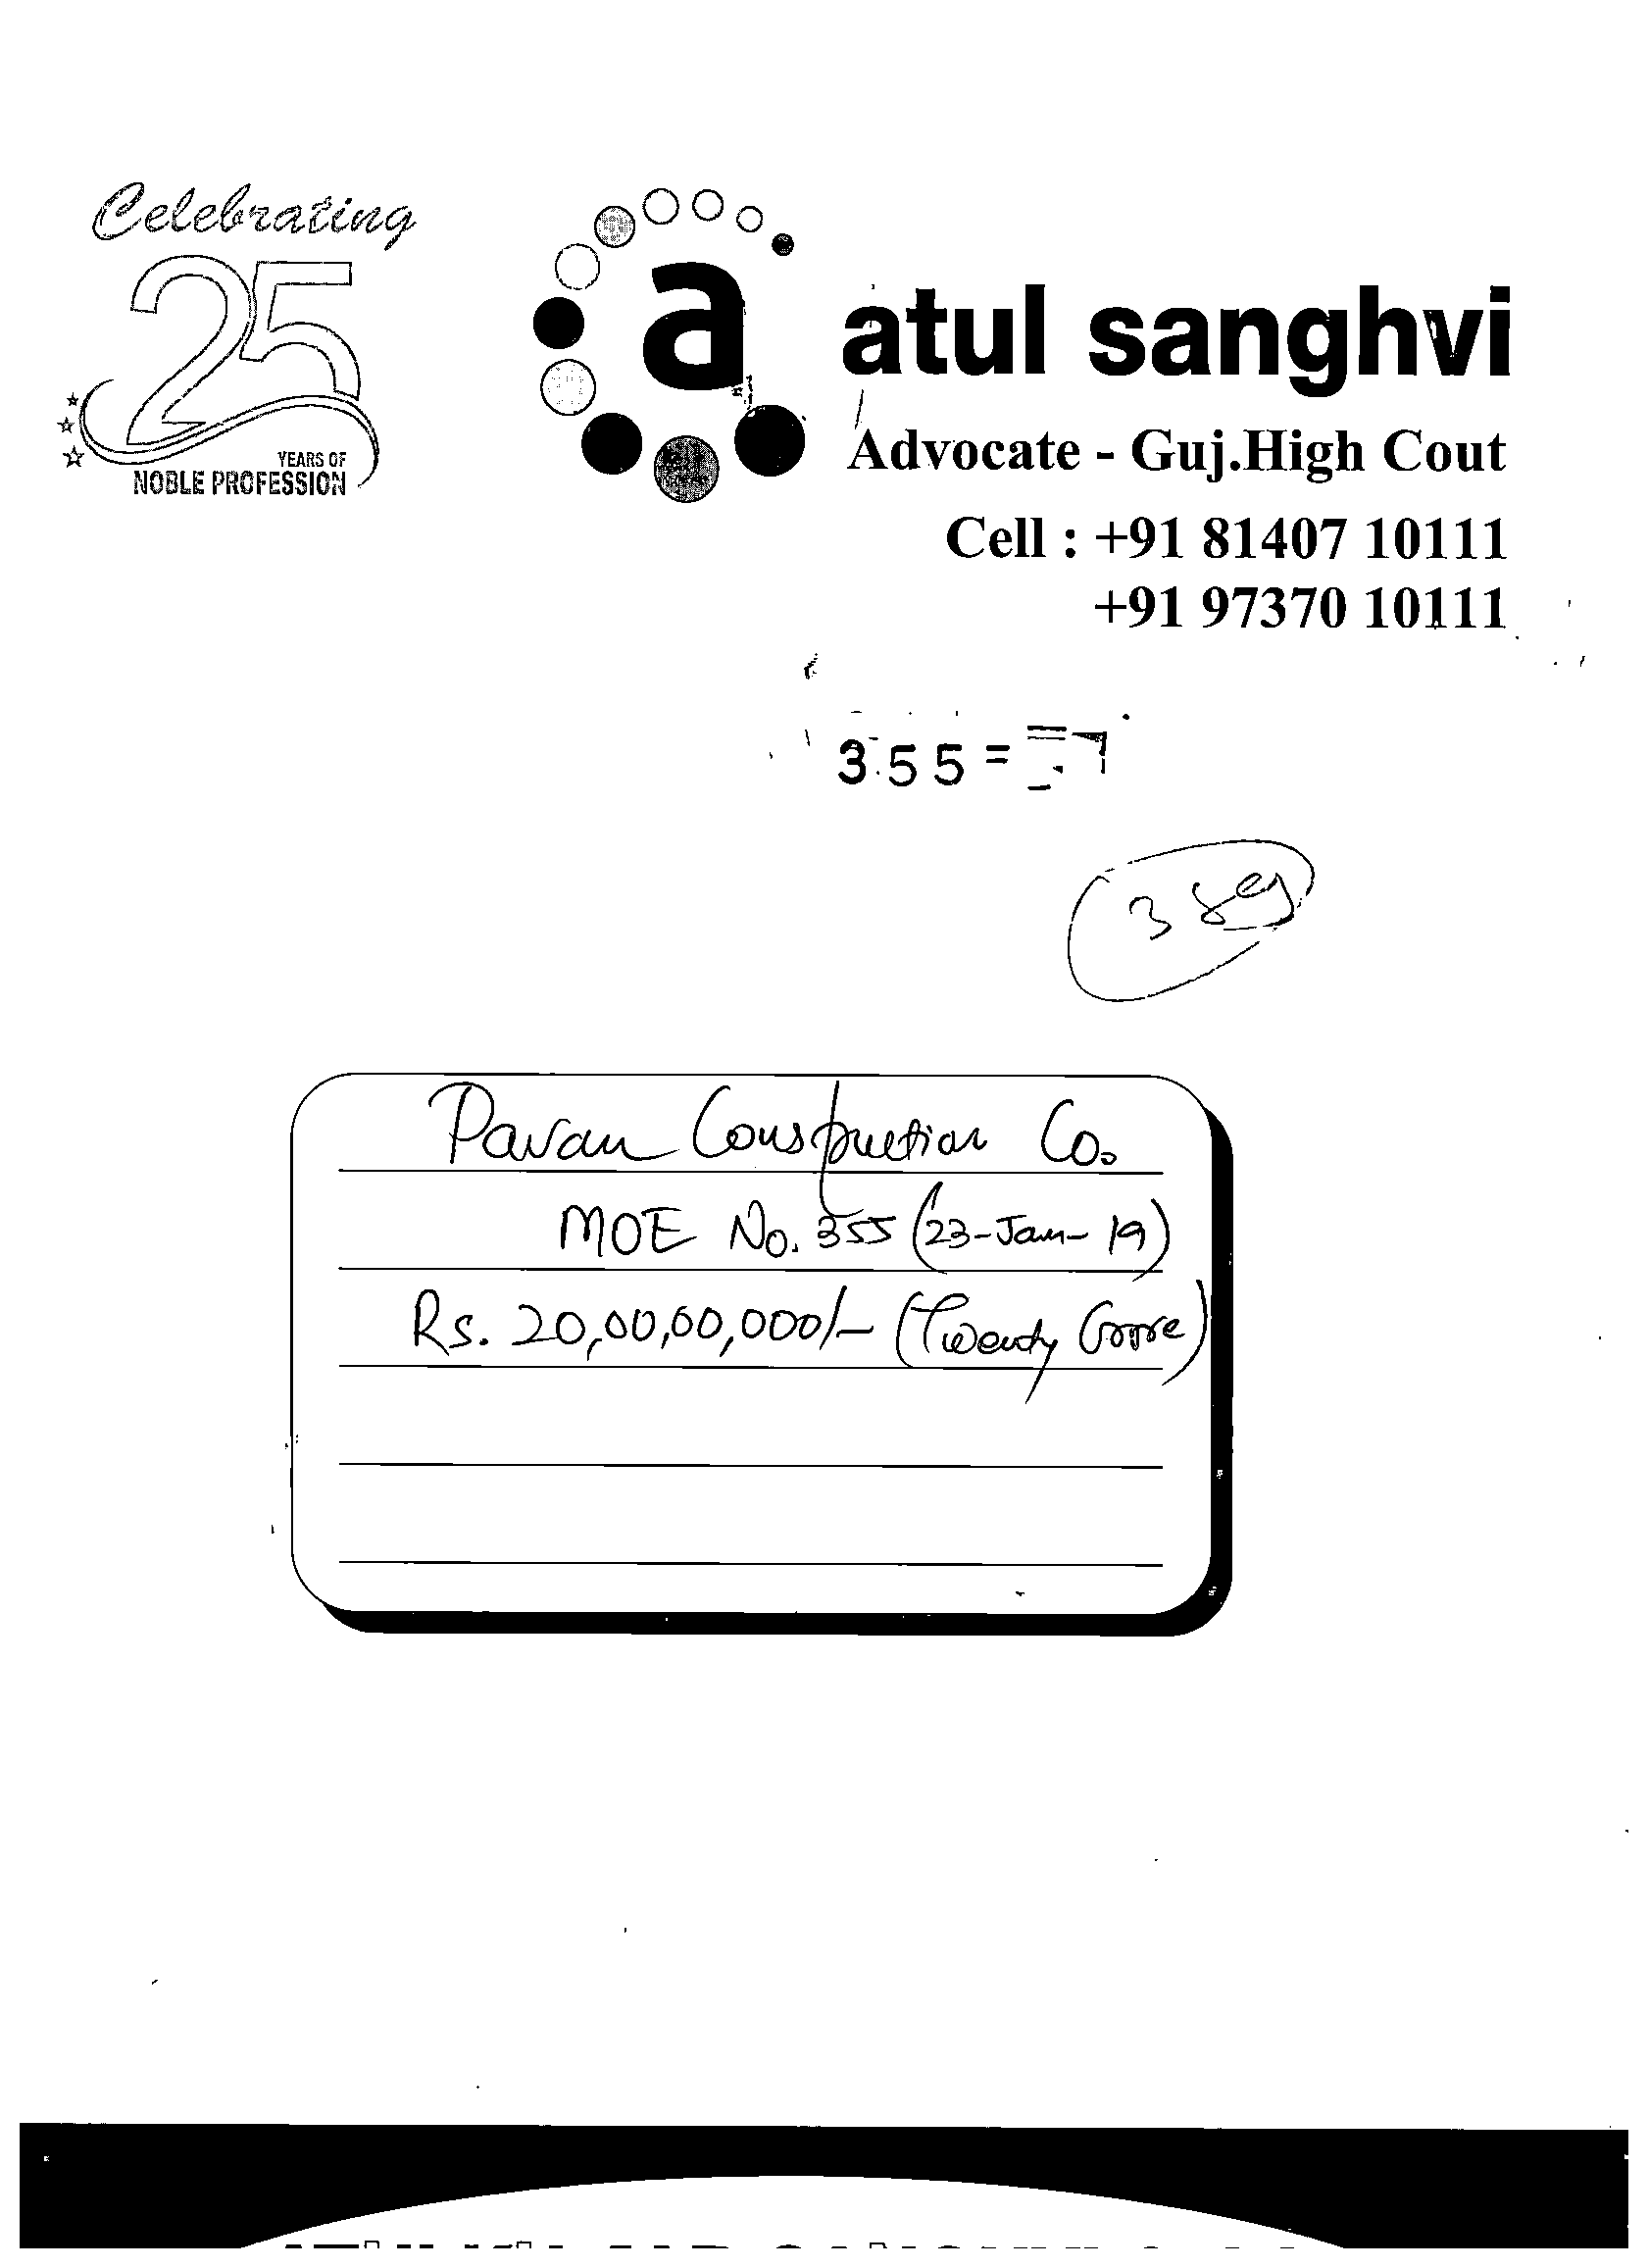 Celebrating
25
YEARS OF
NOBLE PROFESSION
a
atul sanghvi
Advocate - Guj.High Cout
Cell : +91 81407 10111
+91 97370 10111
355=
3
Pavan Construction Co.
MOE No. 355 (23-Jan-19)
Rs. 20,00,00,000/- (Twenty Crore)